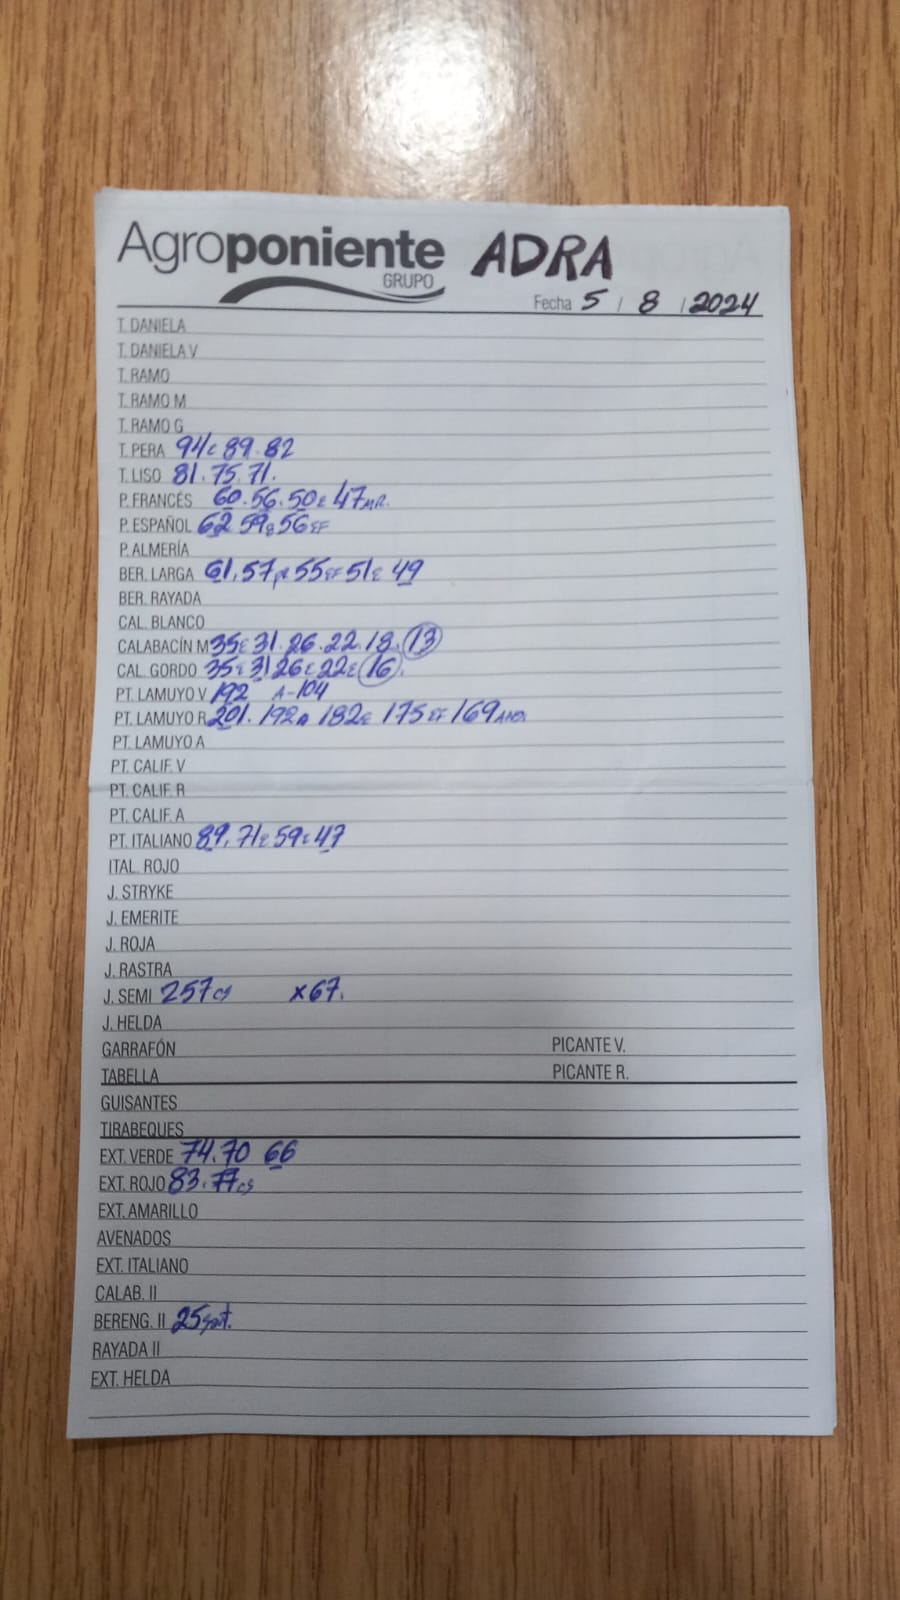 Agroponiente ADRA
GRUPO
Fecha 5 / 8 / 2024
T. DANIELA
T. DANIELA V
T. RAMO
T. RAMO M
T. RAMO G
T. PERA 94c 89.82
T. LISO 81.75.71.
P. FRANCÉS 60.56.50E 47MR.
P. ESPAÑOL 62 59 56EF
P. ALMERÍA
BER. LARGA 61,57 55EF 51E 49
BER. RAYADA
CAL. BLANCO
CALABACÍN M 35E 31.26.22.18.13
CAL. GORDO 35E 31 26E 22E 16.
PT. LAMUYO V 192 A-104
PT. LAMUYO R 201.192A 182E 175EF 169
PT. LAMUYO A
PT. CALIF. V
PT. CALIF. R
PT. CALIF. A
PT. ITALIANO 89,71E 59E 47
ITAL. ROJO
J. STRYKE
J. EMERITE
J. ROJA
J. RASTRA
J. SEMI 257CS x67.
J. HELDA
GARRAFÓN PICANTE V.
TABELLA PICANTE R.
GUISANTES
TIRABEQUES
EXT. VERDE 74.70 66
EXT. ROJO 83.77CS
EXT. AMARILLO
AVENADOS
EXT. ITALIANO
CALAB. II
BERENG. II 25
RAYADA II
EXT. HELDA